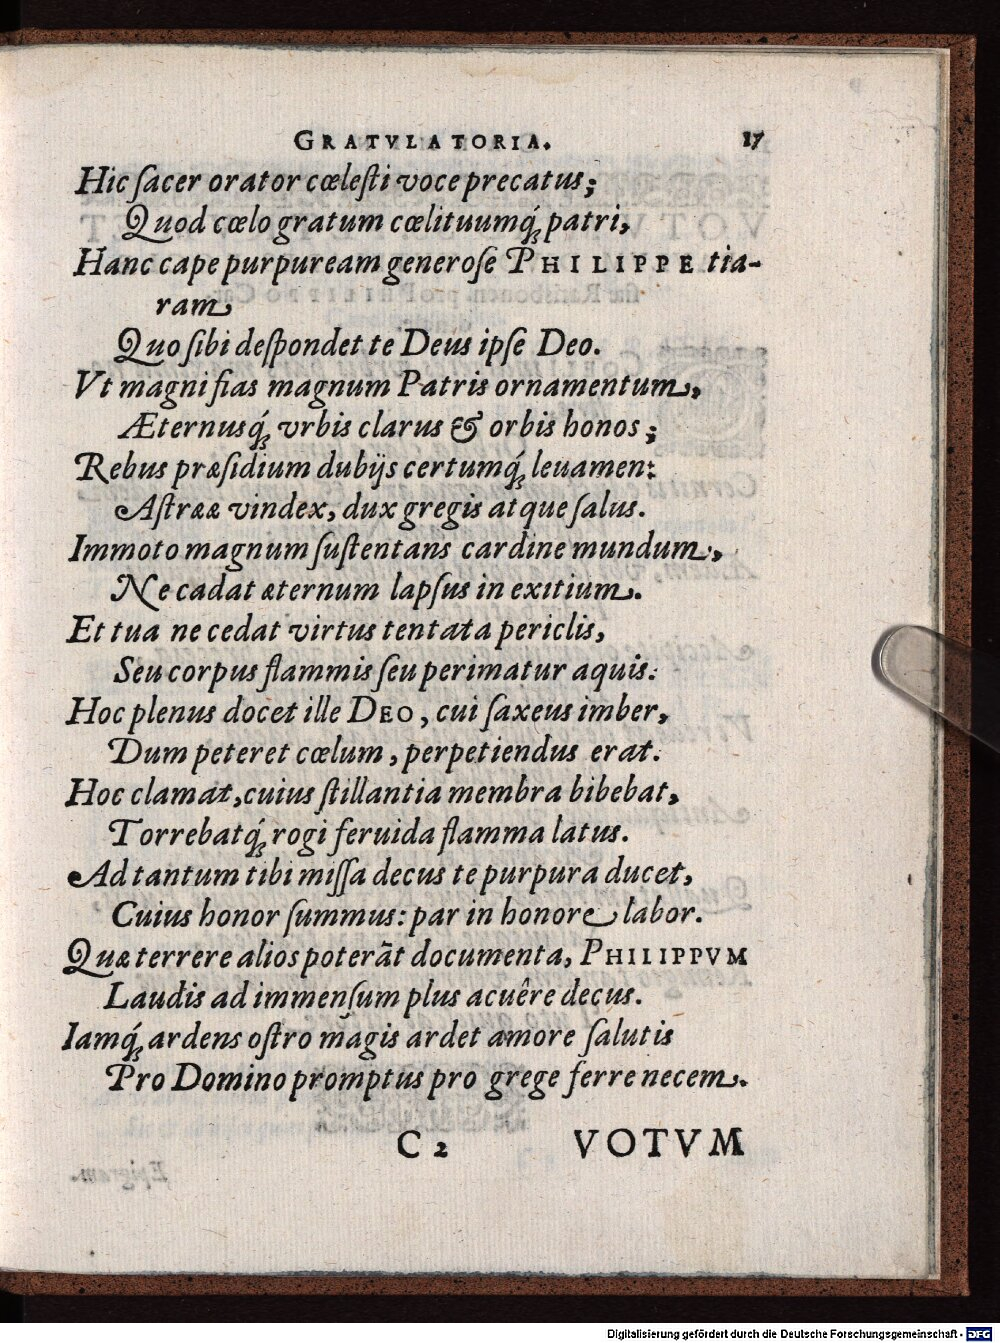 GRATVLATORIA. 17
Hic ſacer orator cœleſti voce precatus;
Quod cœlo gratum cœlituumq́ꝫ patri,
Hanc cape purpuream generoſe PHILIPPE tia-
ram
Quo ſibi deſpondet te Deus ipſe Deo.
Vt magni fias magnum Patris ornamentum,
Æternusq́ꝫ vrbis clarus & orbis honos;
Rebus præſidium dubijs certumq́ꝫ leuamen:
Aſtrææ vindex, dux gregis atque ſalus.
Immoto magnum ſuſtentans cardine mundum,
Ne cadat æternum lapſus in exitium.
Et tua ne cedat virtus tentata periclis,
Seu corpus flammis ſeu perimatur aquis:
Hoc plenus docet ille DEO, cui ſaxeus imber,
Dum peteret cœlum, perpetiendus erat.
Hoc clamat, cuius ſtillantia membra bibebat,
Torrebatq́ꝫ rogi feruida flamma latus.
Ad tantum tibi miſſa decus te purpura ducet,
Cuius honor ſummus: par in honore labor.
Quæ terrere alios poterãt documenta, PHILIPPVM
Laudis ad immenſum plus acuêre decus.
Iamq́ꝫ ardens oſtro magis ardet amore ſalutis
Pro Domino promptus pro grege ferre necem.
C 2 VOTVM
Digitalisierung gefördert durch die Deutsche Forschungsgemeinschaft - DFG